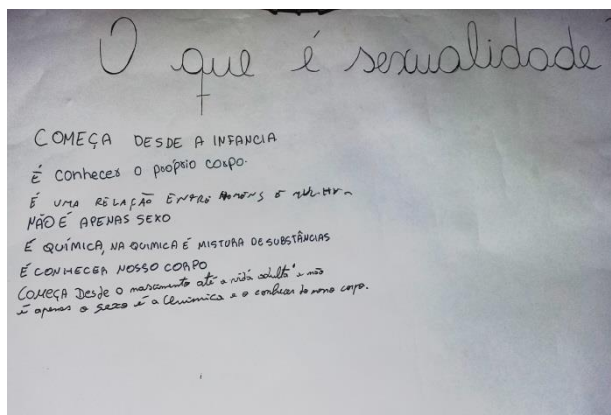 O que é sexualidade
COMEÇA DESDE A INFANCIA
É conhecer o próprio corpo.
É UMA RELAÇÃO ENTRE HOMENS E
NÃO É APENAS SEXO
É QUÍMICA, NA QUIMICA É MISTURA DE SUBSTÂNCIAS
É CONHECER NOSSO CORPO
COMEÇA Desde o nascimento até a vida adulta e não
é apenas o sexo é a e o conhecer do nosso corpo.